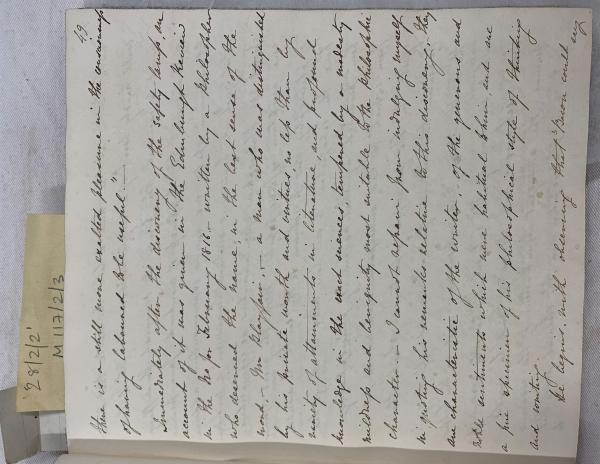 '28/2/2'
M117/2/3
49
there is a still more exalted pleasure in the consciousness
of having laboured to be useful."—
Immediately after the discovery of the safety lamp an
account of it was given in the Edinburgh Review
in the No for February 1816,— written by a Philosopher
who deserved the name, in the best sense of the
word— Mr Playfair,— a man who was distinguished
by his private worth and virtues no less than by
variety of attainments in literature, and profound
knowledge in the exact sciences, tempered by a modesty
mildness and benignity most suitable to the philosophic
character.— I cannot refrain from indulging myself
in quoting his remarks relative to this discovery; they
are characteristic of the writer,— of the generous and
noble sentiments which were habitual to him, and are
a fine specimen of his philosophical style of thinking
and writing.
He begins with observing that "Bacon could
say